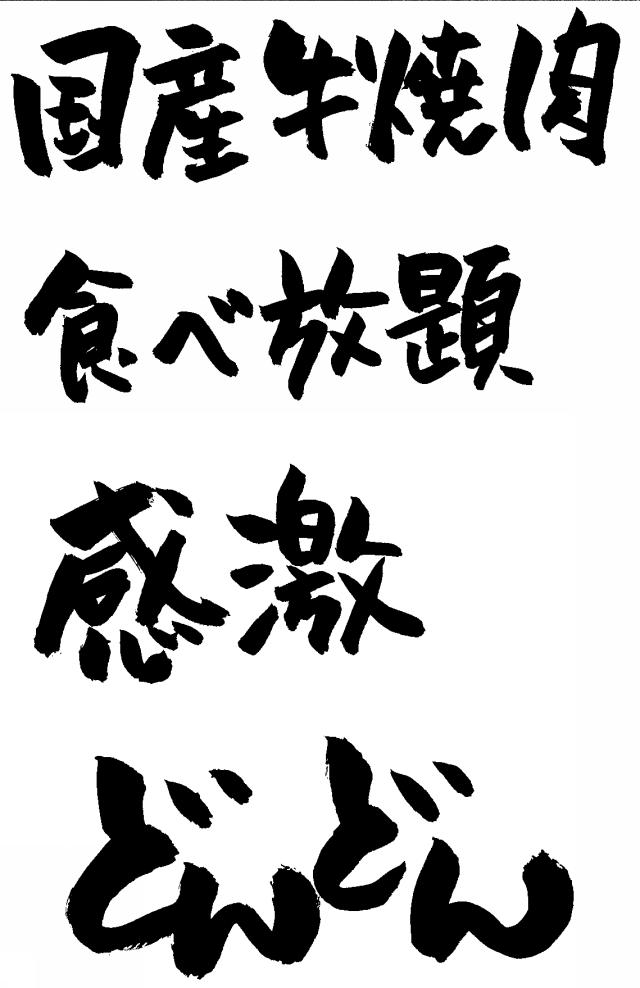 国産牛焼肉
食べ放題
感激
どんどん